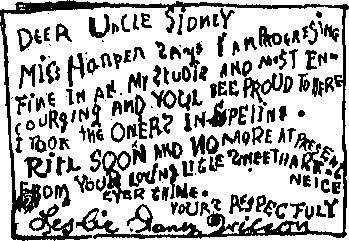 DEER UNCLE SIDNEY
MISS HARPER SAYS I AM PROGRESING
FINE IN AR. MY STUDIE AND MOST EN-
COURGING AND YOUL BEE PROUD TO HERE
I TOOK THE ONERS IN SPEITING.
RITE SOON AND NO MORE AT PRESENT
FROM YOUR LOVING LITLE SWEETHART &
NEICE
EVER THINE.
YOURS RESPECFULY
Leslie Janey Wilson